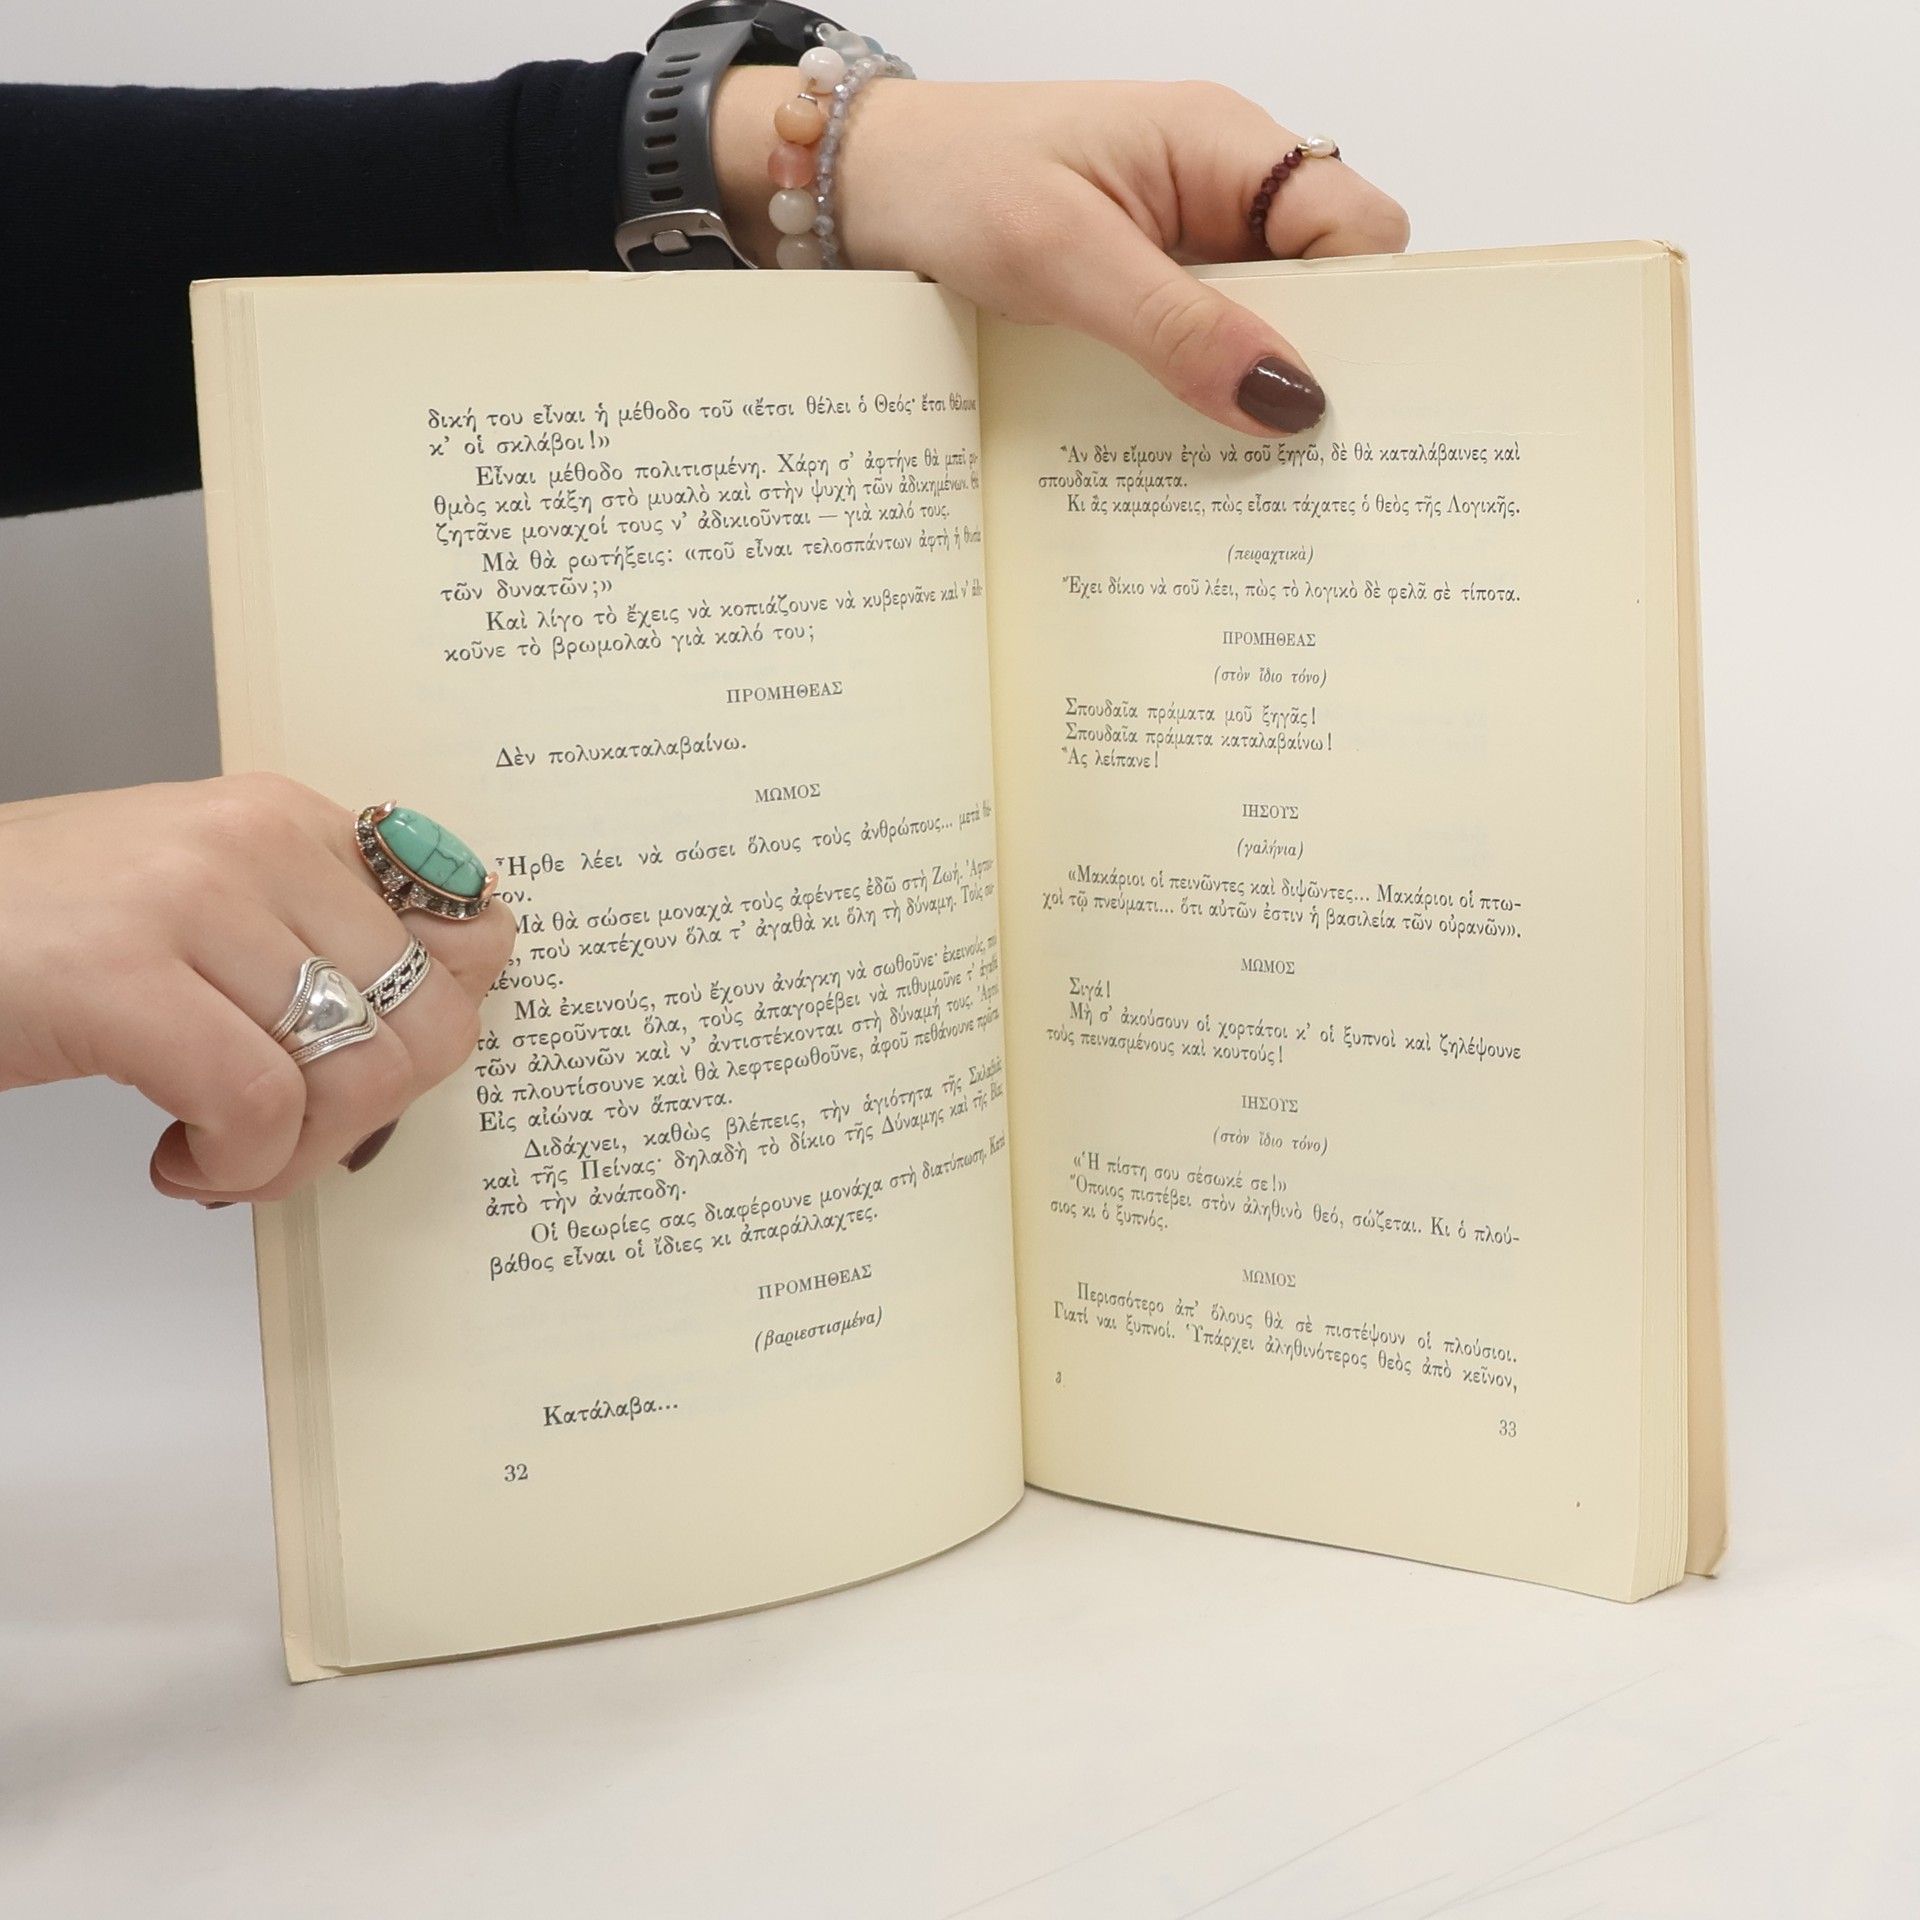 δική του εἶναι ἡ μέθοδο τοῦ «ἔτσι θέλει ὁ Θεός· ἔτσι θέλουνε
κ' οἱ σκλάβοι!»
Εἶναι μέθοδο πολιτισμένη. Χάρη σ' ἀφτήνε θὰ μπεῖ
θμὸς καὶ τάξη στὸ μυαλὸ καὶ στὴν ψυχὴ τῶν ἀδικημένων. Θὰ
ζητᾶνε μοναχοί τους ν' ἀδικιοῦνται — γιὰ καλό τους.
Μὰ θὰ ρωτήξεις: «ποῦ εἶναι τελοσπάντων ἀφτὴ ἡ θυσία
τῶν δυνατῶν;»
Καὶ λίγο τὸ ἔχεις νὰ κοπιάζουνε νὰ κυβερνᾶνε καὶ ν' ἀδι-
κοῦνε τὸ βρωμολαὸ γιὰ καλό του;
ΠΡΟΜΗΘΕΑΣ
Δὲν πολυκαταλαβαίνω.
ΜΩΜΟΣ
Ἦρθε λέει νὰ σώσει ὅλους τοὺς ἀνθρώπους... μετὰ θά-
τον.
Μὰ θὰ σώσει μοναχὰ τοὺς ἀφέντες ἐδῶ στὴ Ζωή.
, ποὺ κατέχουν ὅλα τ' ἀγαθὰ κι ὅλη τὴ δύναμη. Τοὺς
μένους.
Μὰ ἐκεινούς, ποὺ ἔχουν ἀνάγκη νὰ σωθοῦνε· ἐκεινούς, ποὺ
τὰ στεροῦνται ὅλα, τοὺς ἀπαγορέβει νὰ πιθυμοῦνε τ' ἀγαθὰ
τῶν ἀλλωνῶν καὶ ν' ἀντιστέκονται στὴ δύναμή τους. Ἀφτοὶ
θὰ πλουτίσουνε καὶ θὰ λεφτερωθοῦνε, ἀφοῦ πεθάνουνε πρῶτα.
Εἰς αἰώνα τὸν ἅπαντα.
Διδάχνει, καθὼς βλέπεις, τὴν ἁγιότητα τῆς Σκλαβιᾶς
καὶ τῆς Πείνας· δηλαδὴ τὸ δίκιο τῆς Δύναμης καὶ τῆς Βίας
ἀπὸ τὴν ἀνάποδη.
Οἱ θεωρίες σας διαφέρουνε μονάχα στὴ διατύπωση. Κατὰ
βάθος εἶναι οἱ ἴδιες κι ἀπαράλλαχτες.
ΠΡΟΜΗΘΕΑΣ
(βαριεστισμένα)
Κατάλαβα...
32
Ἂν δὲν εἴμουν ἐγὼ νὰ σοῦ ξηγῶ, δὲ θὰ καταλάβαινες καὶ
σπουδαῖα πράματα.
Κι ἂς καμαρώνεις, πὼς εἶσαι τάχατες ὁ θεὸς τῆς Λογικῆς.
(πειραχτικὰ)
Ἔχει δίκιο νὰ σοῦ λέει, πὼς τὸ λογικὸ δὲ φελᾶ σὲ τίποτα.
ΠΡΟΜΗΘΕΑΣ
(στὸν ἴδιο τόνο)
Σπουδαῖα πράματα μοῦ ξηγᾶς!
Σπουδαῖα πράματα καταλαβαίνω!
Ἂς λείπανε!
ΙΗΣΟΥΣ
(γαλήνια)
«Μακάριοι οἱ πεινῶντες καὶ διψῶντες... Μακάριοι οἱ πτω-
χοὶ τῷ πνεύματι... ὅτι αὐτῶν ἐστιν ἡ βασιλεία τῶν οὐρανῶν».
ΜΩΜΟΣ
Σιγά!
Μὴ σ' ἀκούσουν οἱ χορτάτοι κ' οἱ ξυπνοὶ καὶ ζηλέψουνε
τοὺς πεινασμένους καὶ κουτούς!
ΙΗΣΟΥΣ
(στὸν ἴδιο τόνο)
«Ἡ πίστη σου σέσωκέ σε!»
Ὅποιος πιστέβει στὸν ἀληθινὸ θεό, σώζεται. Κι ὁ πλού-
σιος κι ὁ ξυπνός.
ΜΩΜΟΣ
Περισσότερο ἀπ' ὅλους θὰ σὲ πιστέψουν οἱ πλούσιοι.
Γιατί ναι ξυπνοί. Ὑπάρχει ἀληθινότερος θεὸς ἀπὸ κεῖνον,
33